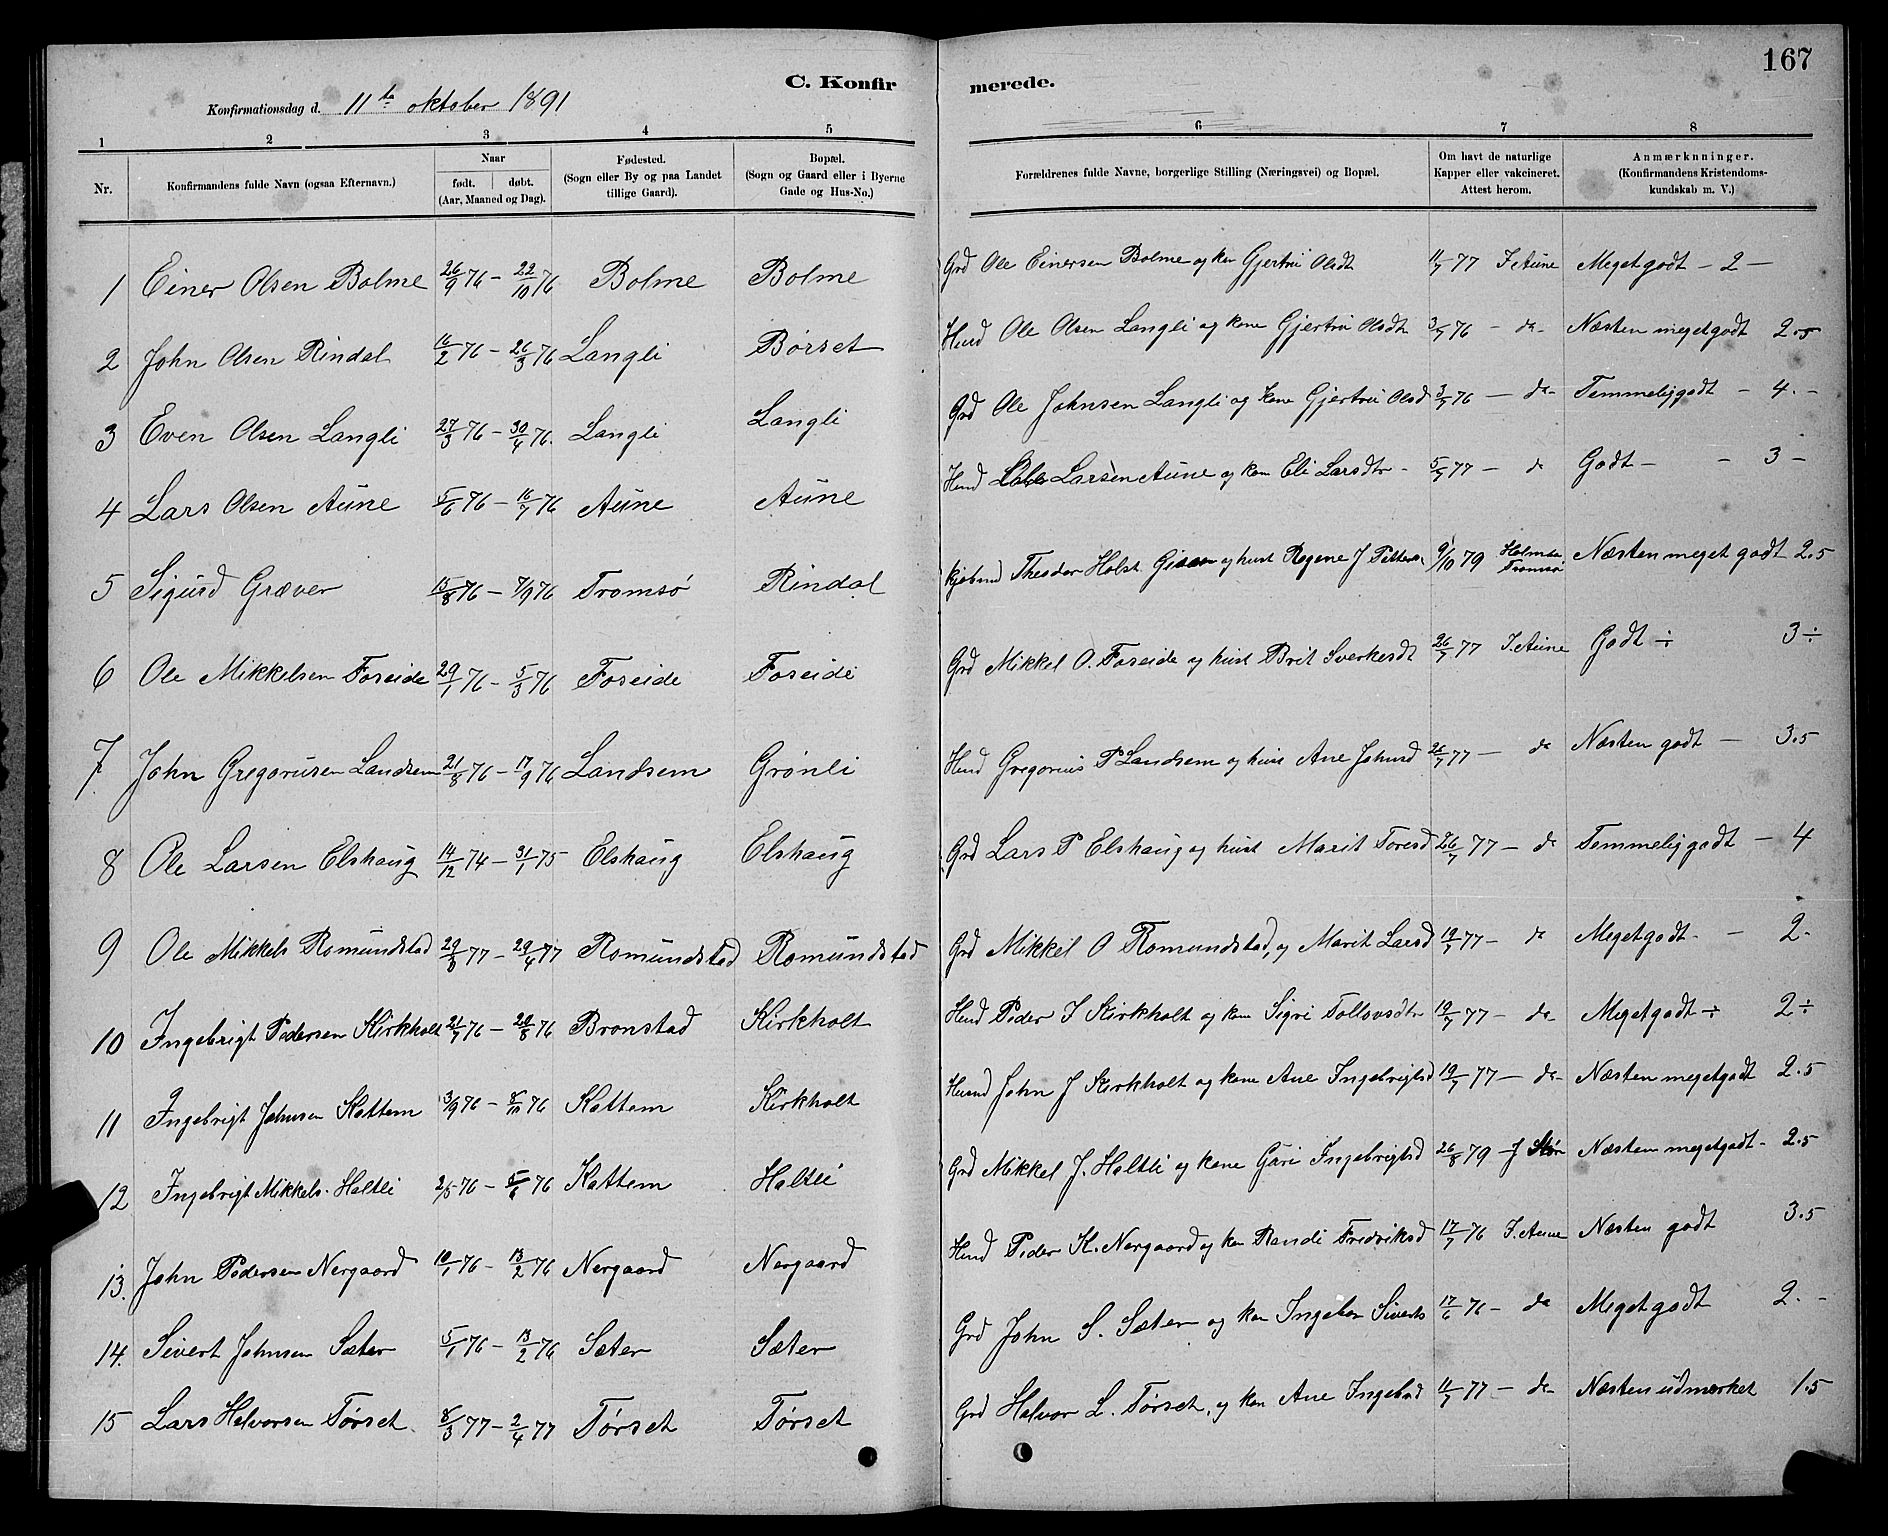 167
C. Konfirmerede.
Konfirmationsdag d. 11te oktober 1891
1 2 3 4 5 6 7 8
Nr. Konfirmandens fulde Navn (ogsaa Efternavn.) Naar født. døbt. (Aar, Maaned og Dag). Fødested. (Sogn eller By og paa Landet tillige Gaard). Bopæl. (Sogn og Gaard eller i Byerne Gade og Hus-No.) Forældrenes fulde Navne, borgerlige Stilling (Næringsvei) og Bopæl. Om havt de naturlige Kapper eller vakcineret. Attest herom. Anmærknninger. (Konfirmandens Kristendomskundskab m. V.)
1 Einer Olsen Bolme 26/9 76 - 22/10 76 Bolme Bolme Grd Ole Einersen Bolme og kon Gjertru Olsdt 11/7 77 I. Aune Megetgodt - 2 -
2 John Olsen Rindal 16/2 76 - 26/3 76 Langli Børset Husd Ole Olsen Langli og kone Gjertru Olsdtr 3/7 76 - do - Næsten megetgodt 2.5
3 Even Olsen Langli 27/3 76 - 30/4 76. Langli Langli Grd Ole Johnsen Langli og kone Gjertru Olsd 3/7 76 - do - Temmeliggodt - 4. -
4 Lars Olsen Aune 5/6 76 - 16/7 76 Aune Aune Husd Larsen Aune og kon Eli Larsdtr - 5/7 77 - do Godt - - 3 -
5 Sigurd Græver 15/8 76 - 7/9 76 Tromsø Rindal kjøbmd Theodor Holst og hust Regene J 9/10 79 Tromsø Næsten meget godt 2.5
6 Ole Mikkelsen Foseide 29/1 76 - 5/3 76 Foseide Foseide Grd Mikkel O. Foseide og hust Brit Sverkesdt 26/7 77 I. Aune Godt ÷ 3 ÷
7 John Gregoriusen Landsem 21/8 76 - 17/9 76 Landsem Grønli Husd Gregorius P Landsem og hust Ane Johnsd 26/7 77 - do Næsten godt - 3.5
8 Ole Larsen Elshaug 14/12 74 - 31/1 75 Elshaug Elshaug Grd Lars P Elshaug og hust Marit Toresd 26/7 77 - do Temmeliggodt - 4
9 Ole Mikkels Romundstad 29/3 77 - 29/4 77 Romundstad Romundstad Grd Mikkel O Romundstad, og Marit Larsd 19/7 77 - do Megetgodt - - 2 -
10 Ingebrigt Pedersen Kirkholt 21/7 76 - 20/8 76 Bronstad Kirkholt Husd Peder I Kirkholt og kon Sigri Tollovsdtr 19/7 77 - do Megetgodt ÷ 2 ÷
11 Ingebrigt Johnsen Kattem 3/9 76 - 8/10 76 Kattem Kirkholt Husmd John J Kirkholt og kone Ane Ingebrigtsd 19/7 77 - do - Næsten megetgodt 2.5
12 Ingebrigt Mikkels. Holtli 2/5 76 - 5/6 76 Kattem Holtli Grd Mikkel J. Holtli og kone Gari Ingebrigtsd 26/8 79 Næsten megetgodt - 2.5
13. John Pedersen Nergaard 10/1 76 - 13/2 76 Nergaard Nergaard Husd Peder K. Nergaard og kon Randi Fredriksd 17/7 76 I. Aune Næsten godt 3.5
14. Sivert Johnsen Sæter 5/1 76 - 13/2 76 Sæter Sæter Grd John S. Sæter og kon Ingebor Siverts 17/6 76 - do Megetgodt 2. -
15 Lars Halvorsen Tørset 8/3 77 - 2/4 77 Tørset Tørset Grd Halvor L. Tørset, og kon Ane Ingebrd 11/7 77 - do - Næsten udmærket 1.5